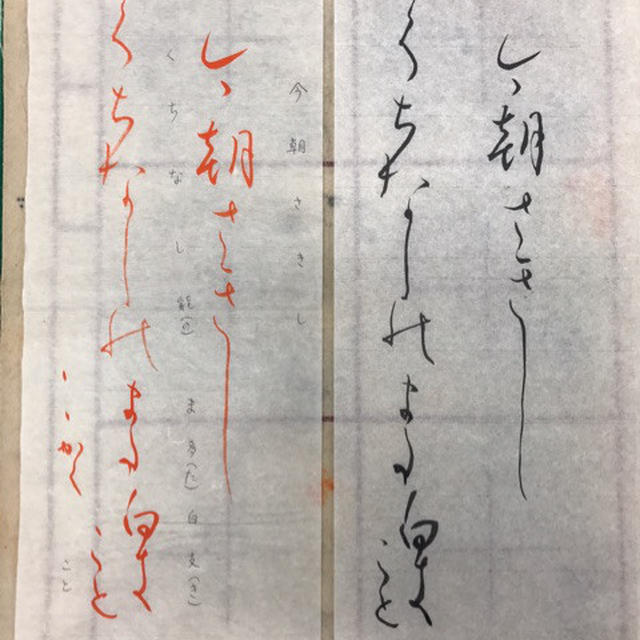 今朝さきし
くちなし能ま多白支
こと
今朝さきし
今朝さきし
くちなし能(の)ま多(た)白支(き)
くちなし能ま多白支
こと
こと